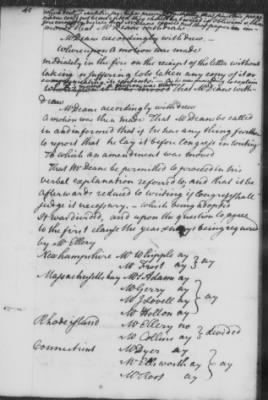 45
moved that Mr Deane withdraw
Mr Deane accordingly withdrew
Whereupon a motion was made
mediately in the fire on the receipt of the letter without
taking or suffering to be taken any copy of it or
moved that Mr Deane with-
draw
Mr Deane accordingly withdrew
A motion was then made That Mr Deane be called
in and informed that if he has any thing further
to report that he lay it before Congress in writing
To which an amendment was moved
That Mr Deane be permitted to proceed in his
verbal explanation referred to, and that it be
afterwards reduced to writing if Congress shall
judge it necessary. - which being adopted
It was divided, and upon the question to agree
to the first clause the yeas & nays being required
by Mr Ellery
New hampshire Mr Whipple ay } ay
Mr Frost ay
Massachusetts bay Mr S Adams ay } ay
Mr Gerry ay
Mr Lovell ay
Mr Holton ay
Rhode island Mr Ellery no } divided
Mr Collins ay
Connecticut Mr Dyer ay } ay
Mr Ellsworth ay
Mr Root ay